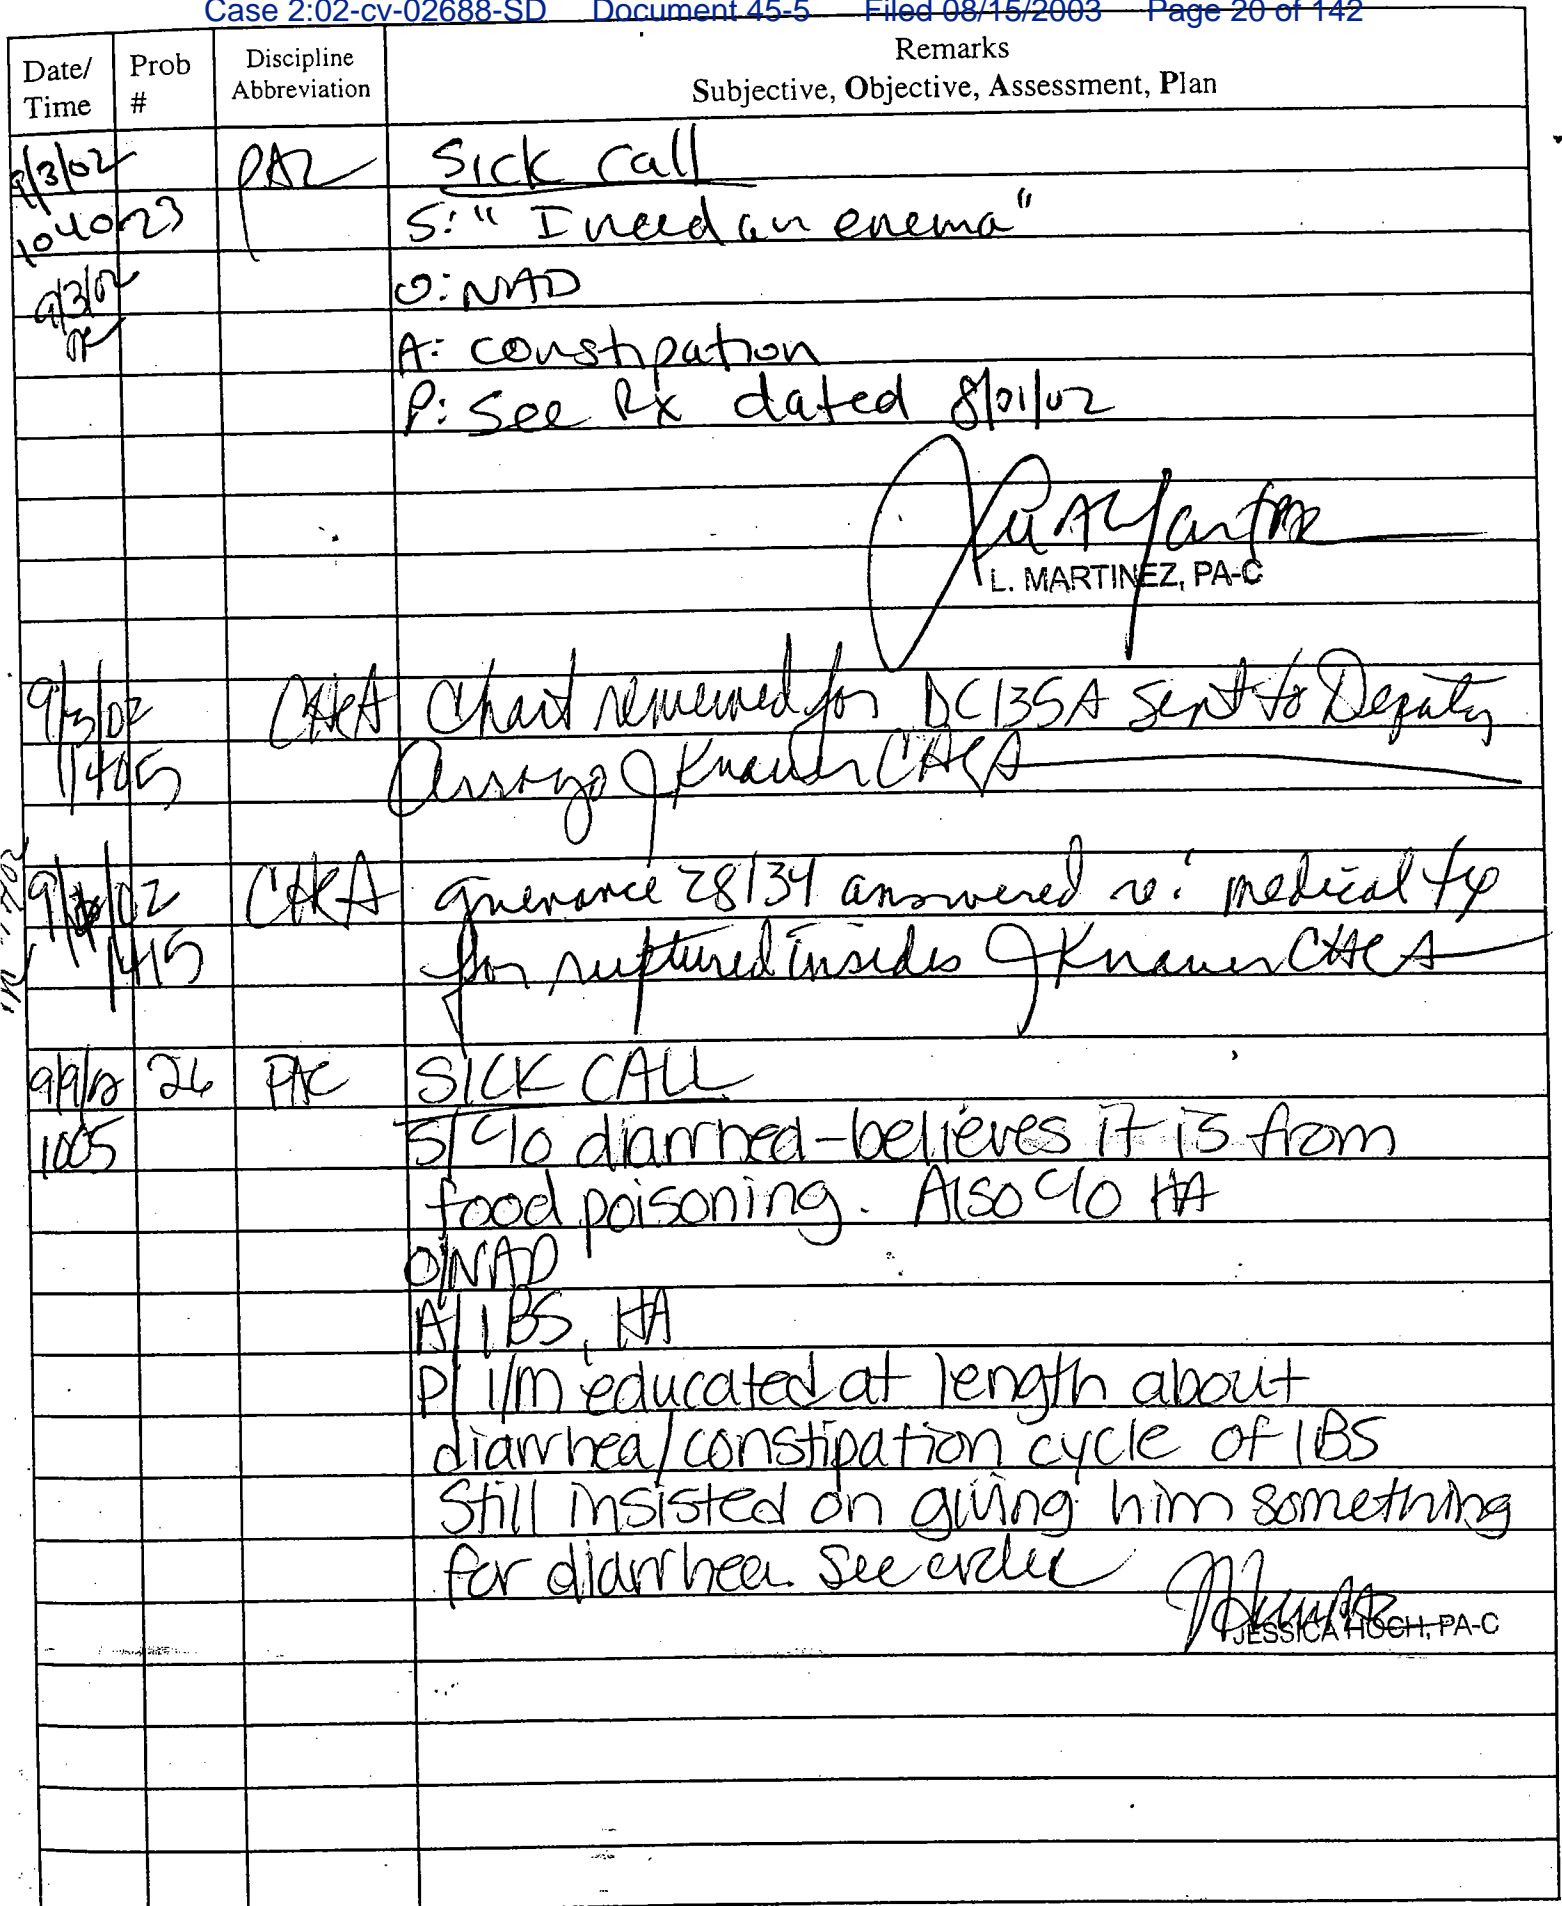 Case 2:02-cv-02688-SD Document 45-5 Filed 08/15/2003 Page 20 of 142
Date/ Time
Prob #
Discipline Abbreviation
Remarks
Subjective, Objective, Assessment, Plan
9/3/02 Sick Call
1040 23 S: " I need an enema"
9/3/02 O: NAD
A: constipation
P: See Rx dated 8/01/02
L. MARTINEZ, PA-C
9/3/02 CHCA Chart reviewed for DC135A sent to Deputy
1405 Arroyo J Knauer CHCA
CHCA grievance 28134 answered re: medical
1415 for ruptured insides J Knauer CHCA
9/9/02 26 PAC SICK CALL
1005 S/ c/o diarrhea-believes it is from
food poisoning. Also c/o HA
O/ NAD
A/ IBS, HA
P/ I/m educated at length about
diarrhea/constipation cycle of IBS
Still insisted on giving him something
for diarrhea. See order
JESSICA HOCH, PA-C